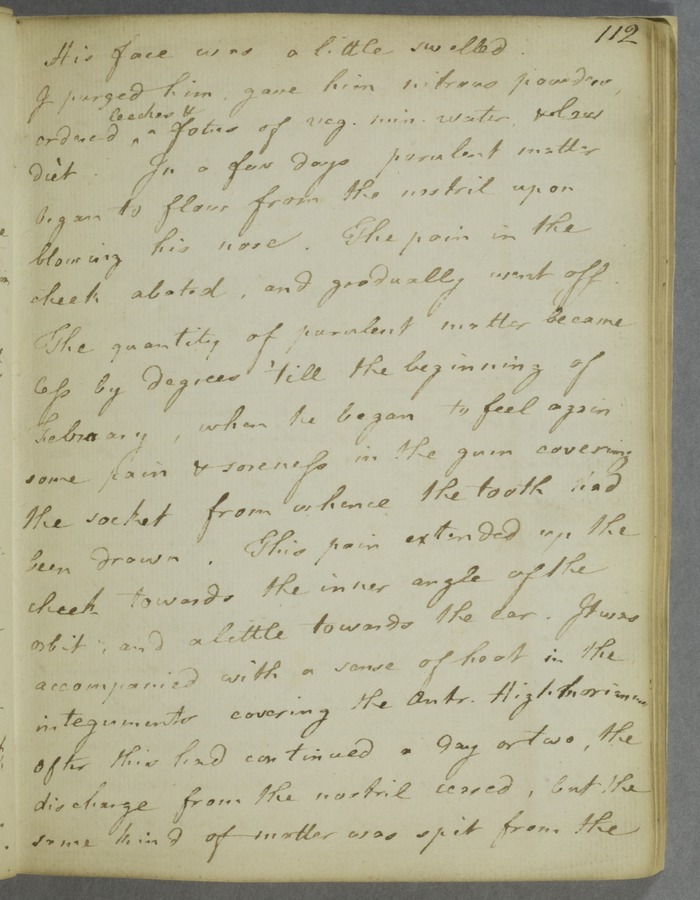 112
His face was a little swelled.
I purged him, gave him nitrous powders,
leeches &
ordered ^ a fotus of veg. min. water, & low
diet. In a few days purulent matter
began to flow from the nostril upon
blowing his nose. The pain in the
cheek abated, and gradually went off.
The quantity of purulent matter became
less by degrees 'till the beginning of
February, when he began to feel again
some pain & soreness in the gum covering
the socket from whence the tooth had
been drawn. This pain extended up the
cheek towards the inner angle of the
orbit, and a little towards the ear. It was
accompanied with a sense of heat in the
integuments covering the Antr. Highmorianum
after this had continued a day or two, the
discharge from the nostril ceased, but the
same kind of matter was spit from the